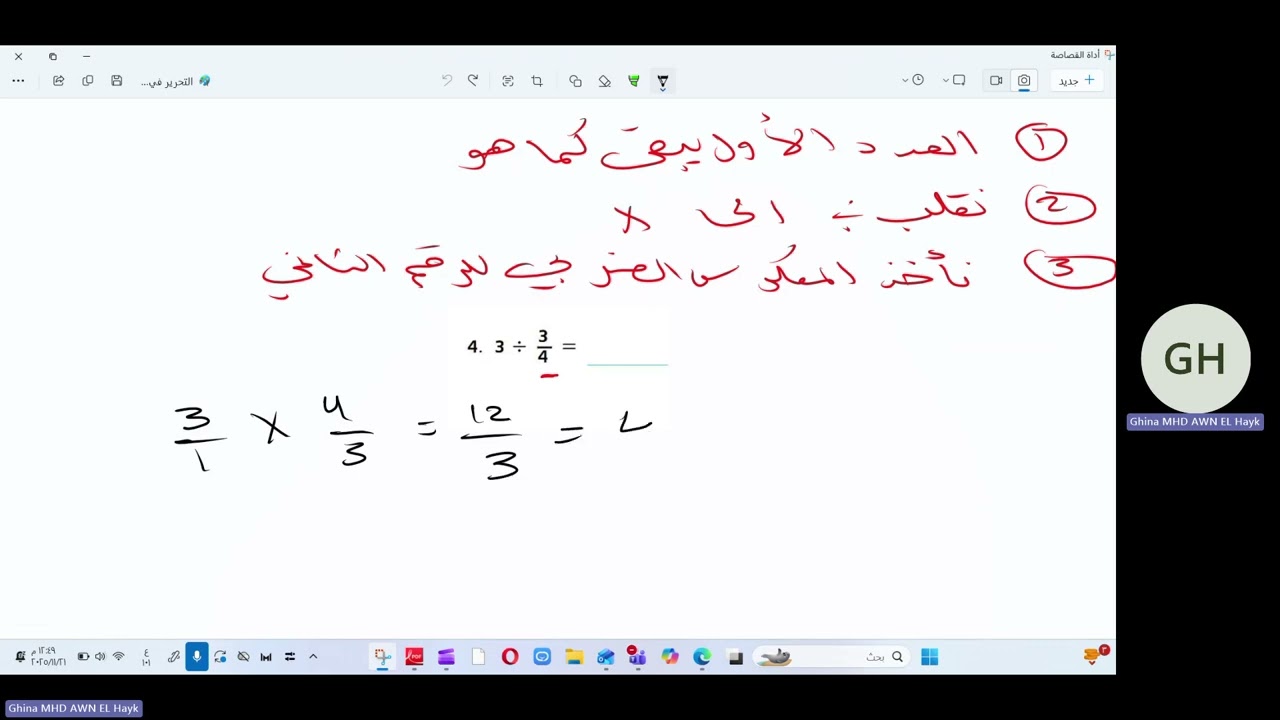 أداة القصاصة
جديد
التحرير في...
① العدد الأول يبقى كما هو
② نقلب ÷ الى ×
③ نأخذ المعكوس الضربي للرقم الثاني
4. 3 ÷ 3/4 =
3/1 × 4/3 = 12/3 =
GH
Ghina MHD AWN EL Hayk
بحث
١٢:٤٩ م
٢٠٢٥/١١/٢١
٤
١٠١
٣
Ghina MHD AWN EL Hayk